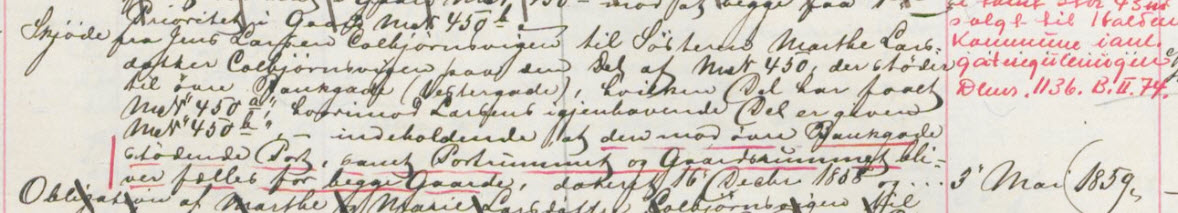 Prioritet i Gaard MatN 450 b.
Skjøde fra Jens Larsen Colbjørnsvigen til Søsteren Marthe Lars-
datter Colbjørnsvigen paa den Del af MatN 450, der støder
til øvre Bankgade (Vestergade), hvilken Del har faaet
MatN "450 a", hvorimod Larsens igjenhavende Del er given
MatN "450 b", – indeholdende, at den mod øvre Bankgade
stødende Port, samt Portrummet og Gaardsrummet bli-
ver fælles for begge Gaarde, dateret 16 Decbr 1858 ....
5 Mai 1859,
Obligation af Marthe og Marie Larsdatter Colbjørnsvigen til
solgt til Halden
Kommune i anl.
gatereguleringen
Dens. 1136. B. II. 74.